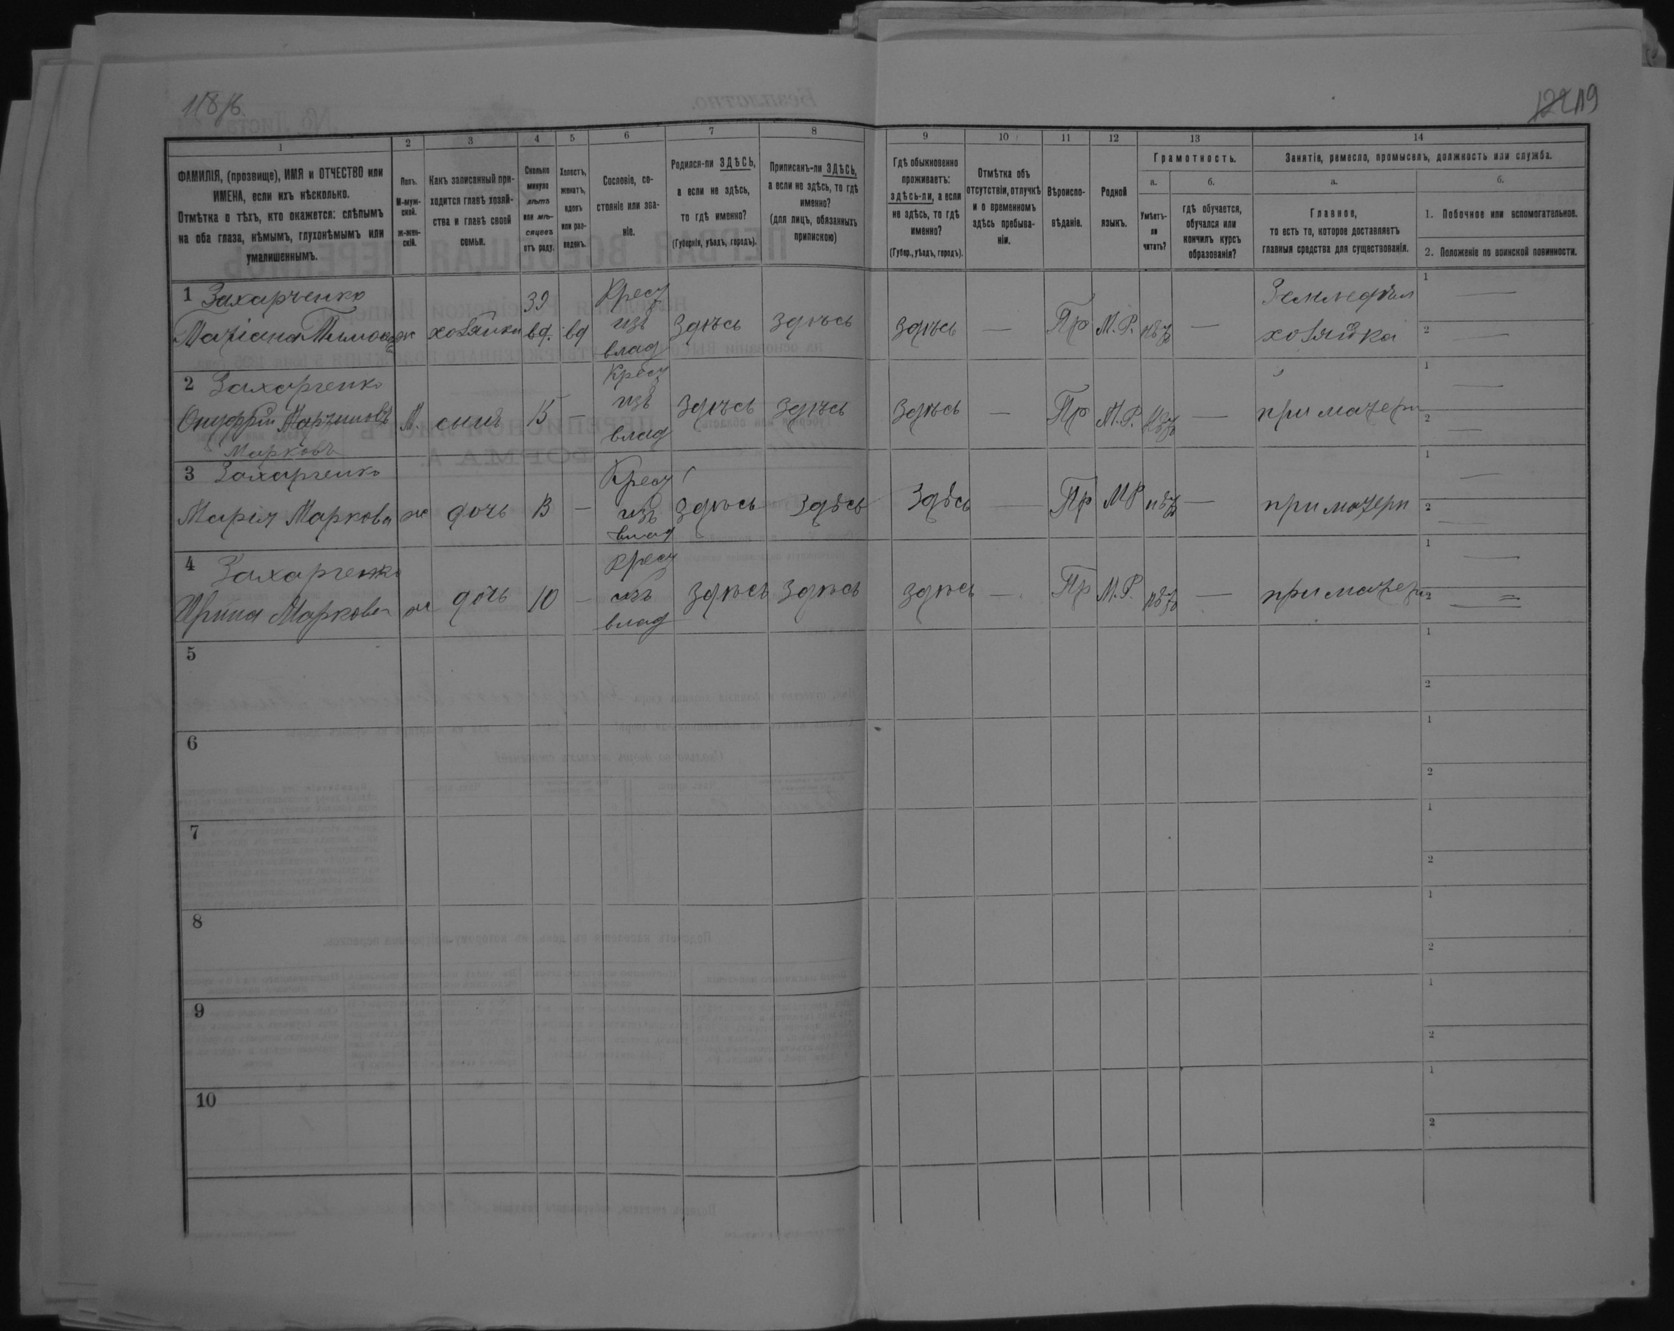 118 б.
119
1
2
3
4
5
6
7
8
9
10
11
12
13
14
ФАМИЛІЯ, (прозвище), ИМЯ и ОТЧЕСТВО или
ИМЕНА, если ихъ нѣсколько.
Отмѣтка о тѣхъ, кто окажется: слѣпымъ
на оба глаза, нѣмымъ, глухонѣмымъ или
умалишеннымъ.
Полъ.
М-муж-
ской.
Ж-жен-
скій.
Какъ записанный при-
ходится главѣ хозяй-
ства и главѣ своей
семьи.
Сколько
минуло
лѣтъ
или мѣ-
сяцевъ
отъ роду.
Холостъ,
женатъ,
вдовъ
или раз-
веденъ.
Сословіе, со-
стояніе или зва-
ніе.
Родился-ли ЗДѢСЬ,
а если не здѣсь,
то гдѣ именно?
(Губернія, уѣздъ, городъ).
Приписанъ-ли ЗДѢСЬ,
а если не здѣсь, то гдѣ
именно?
(для лицъ, обязанныхъ
припискою)
Гдѣ обыкновенно
проживаетъ:
здѣсь-ли, а если
не здѣсь, то гдѣ
именно?
(Губер., уѣздъ, городъ).
Отмѣтка объ
отсутствіи, отлучкѣ
и о временномъ
здѣсь пребыва-
ніи.
Вѣроиспо-
вѣданіе.
Родной
языкъ.
Грамотность.
а.
Умѣетъ-
ли
читать?
б.
гдѣ обучается,
обучался или
кончилъ курсъ
образованія?
Занятія, ремесло, промыселъ, должность или служба.
а.
Главное,
то есть то, которое доставляетъ
главныя средства для существованія.
б.
1. Побочное или вспомогательное.
2. Положеніе по воинской повинности.
1 Захарченко
Татіана ж хозяйка 39 вд. вд Крест изъ влад Здѣсь Здѣсь Здѣсь — Пр М.Р. нѣтъ — Земледѣл хозяйка 1 — 2 —
2 Захарченко
Онуфрій Марковъ М. сынъ 15 — Крест изъ влад Здѣсь Здѣсь Здѣсь — Пр М.Р. нѣтъ — при матери 1 — 2 —
3 Захарченко
Марія Маркова ж дочь 13 — Крест изъ влад Здѣсь Здѣсь Здѣсь — Пр М.Р нѣтъ — при матери 1 — 2 —
4 Захарченко
Ирина Маркова ж дочь 10 — Крест изъ влад Здѣсь Здѣсь Здѣсь — Пр М.Р. нѣтъ — при матери 1 — 2 —
5 1 2
6 1 2
7 1 2
8 1 2
9 1 2
10 1 2